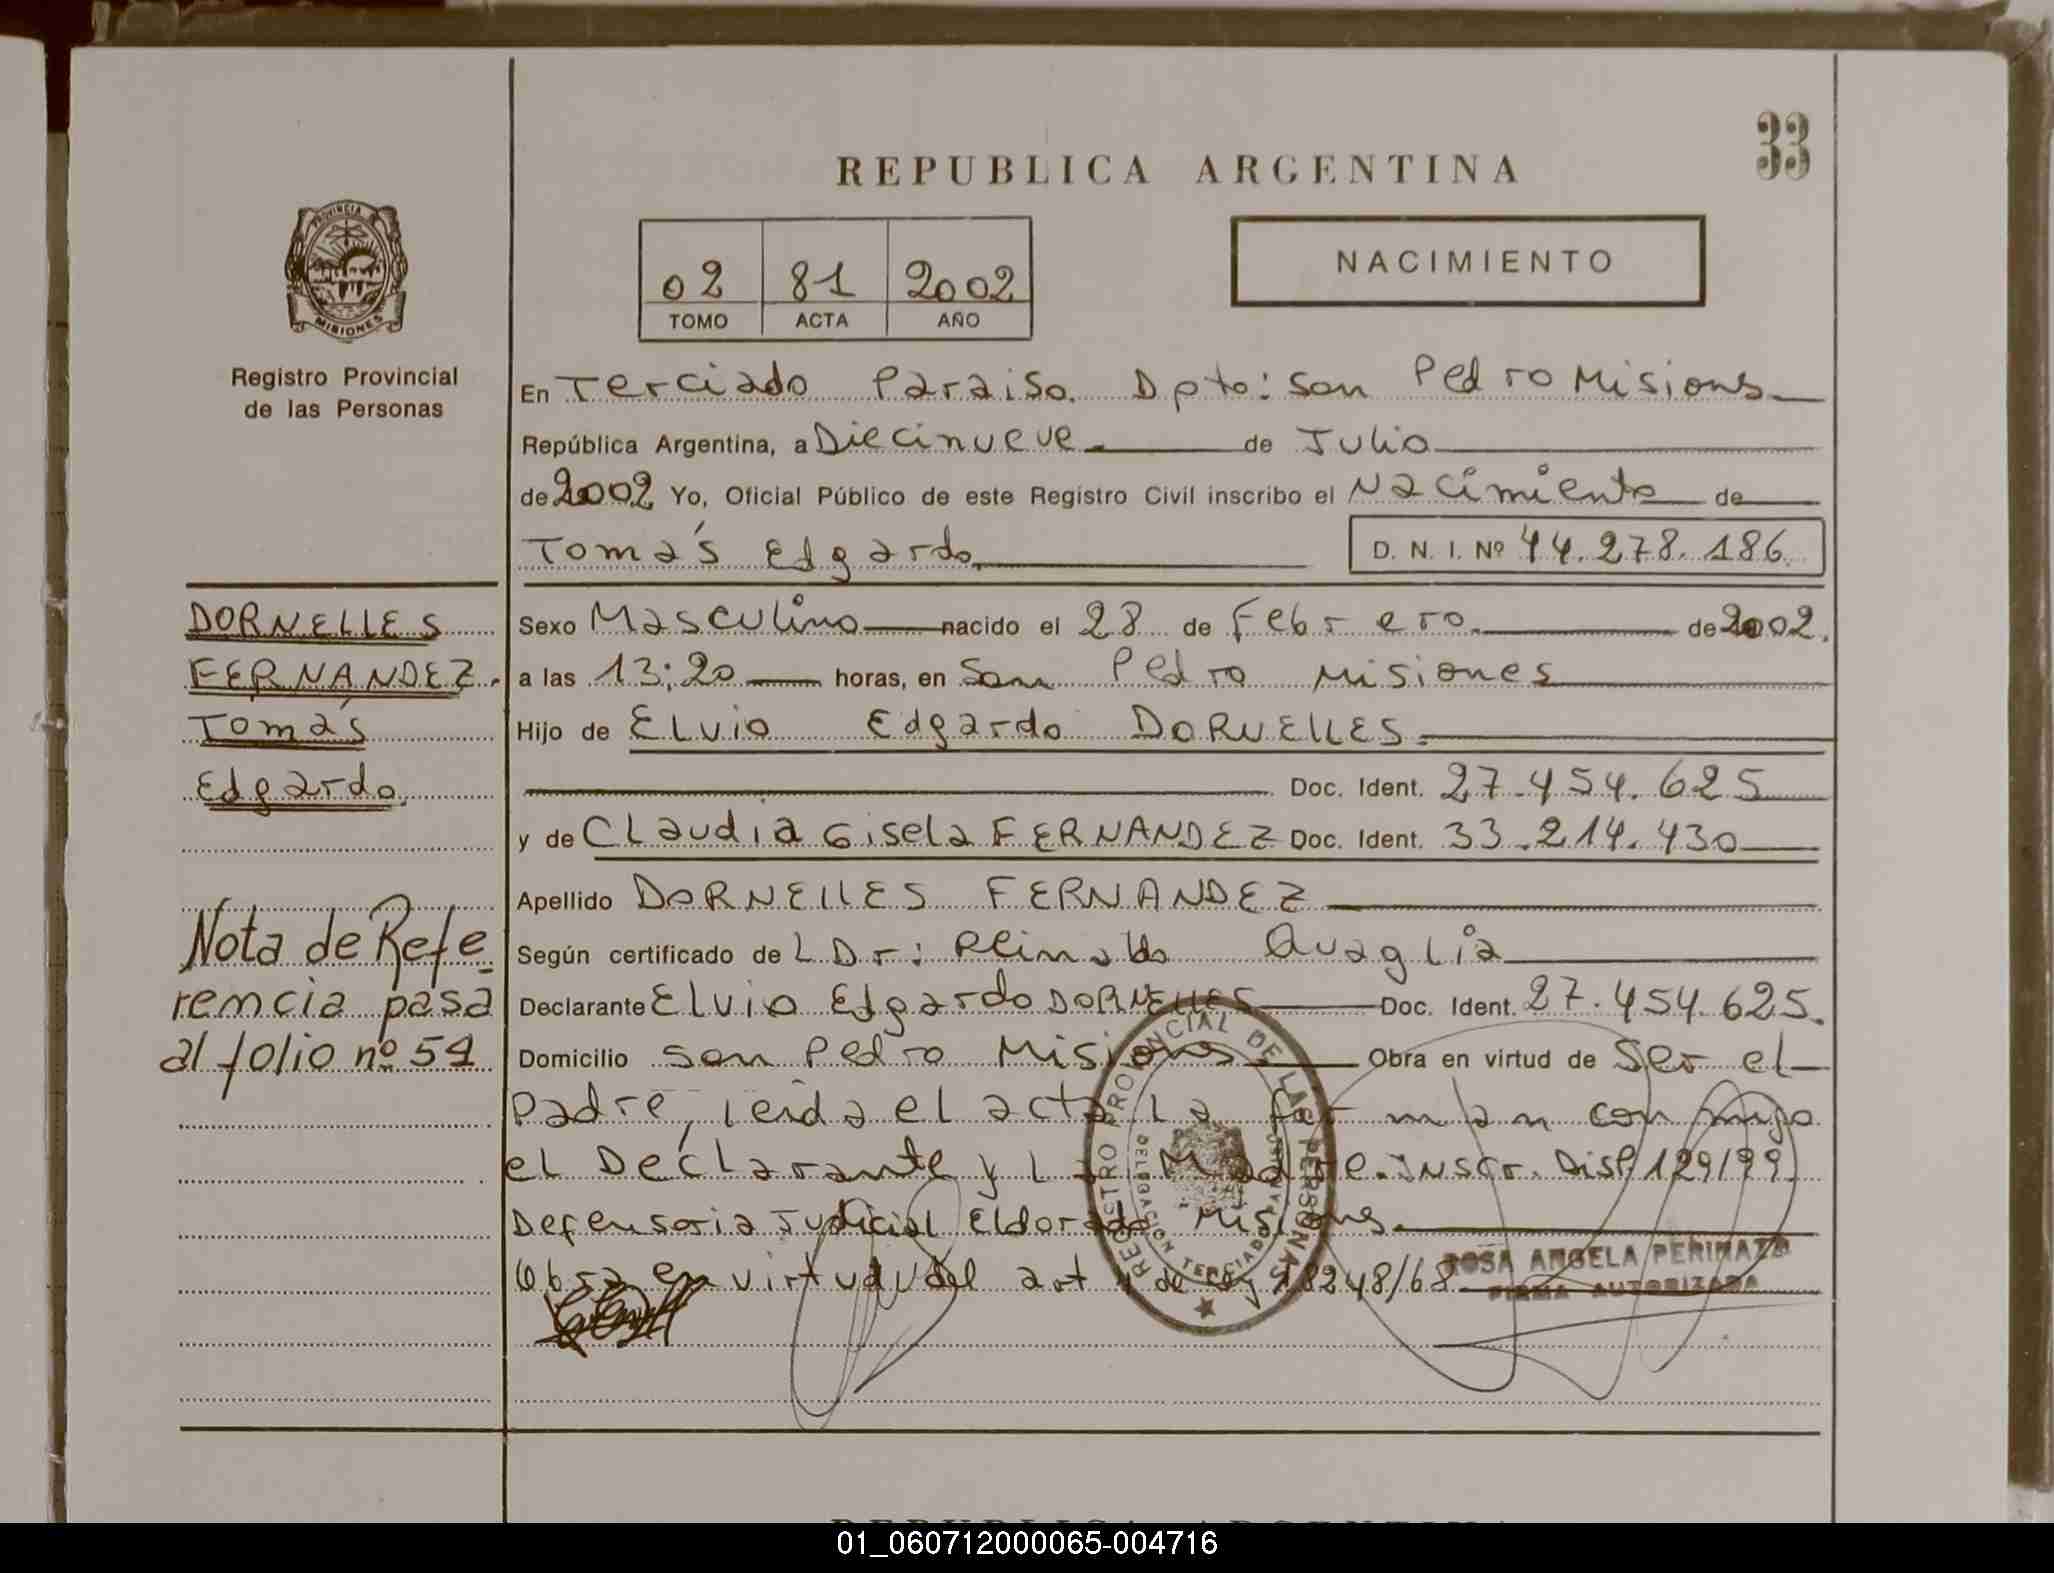 33
REPUBLICA ARGENTINA
PROVINCIA
MISIONES
Registro Provincial
de las Personas
02 81 2002
TOMO ACTA AÑO
NACIMIENTO
En Terciado Paraiso. Dpto: San Pedro Misiones
República Argentina, a Diecinueve de Julio
de 2002 Yo, Oficial Público de este Registro Civil inscribo el Nacimiento de
Tomás Edgardo D. N. I. Nº 44.278.186.
DORNELLES
FERNANDEZ.
Tomás
Edgardo.
Sexo Masculino nacido el 28 de Febrero. de 2002.
a las 13:20 horas, en San Pedro Misiones
Hijo de Elvio Edgardo DORNELLES.
Doc. Ident. 27.454.625
y de Claudia Gisela FERNANDEZ Doc. Ident. 33.214.430
Apellido DORNELLES FERNANDEZ
Nota de Refe-
rencia pasa
al folio nº 51
Según certificado de L Dr: Reinaldo Quaglia
Declarante Elvio Edgardo DORNELLES Doc. Ident. 27.454.625.
Domicilio San Pedro Misiones Obra en virtud de Ser el
Padre, leida el acta La firman conmigo
el Declarante y La Madre. Inscr. Disp. 129/99.
Defensoria Judicial Eldorado Misiones.
Obra en virtud del art 4 de Ley 18248/68
REGISTRO PROVINCIAL DE LAS PERSONAS
DELEGACION TERCIADO PARAISO
ROSA ANGELA PERINATO
FIRMA AUTORIZADA
REPUBLICA ARGENTINA
01_060712000065-004716